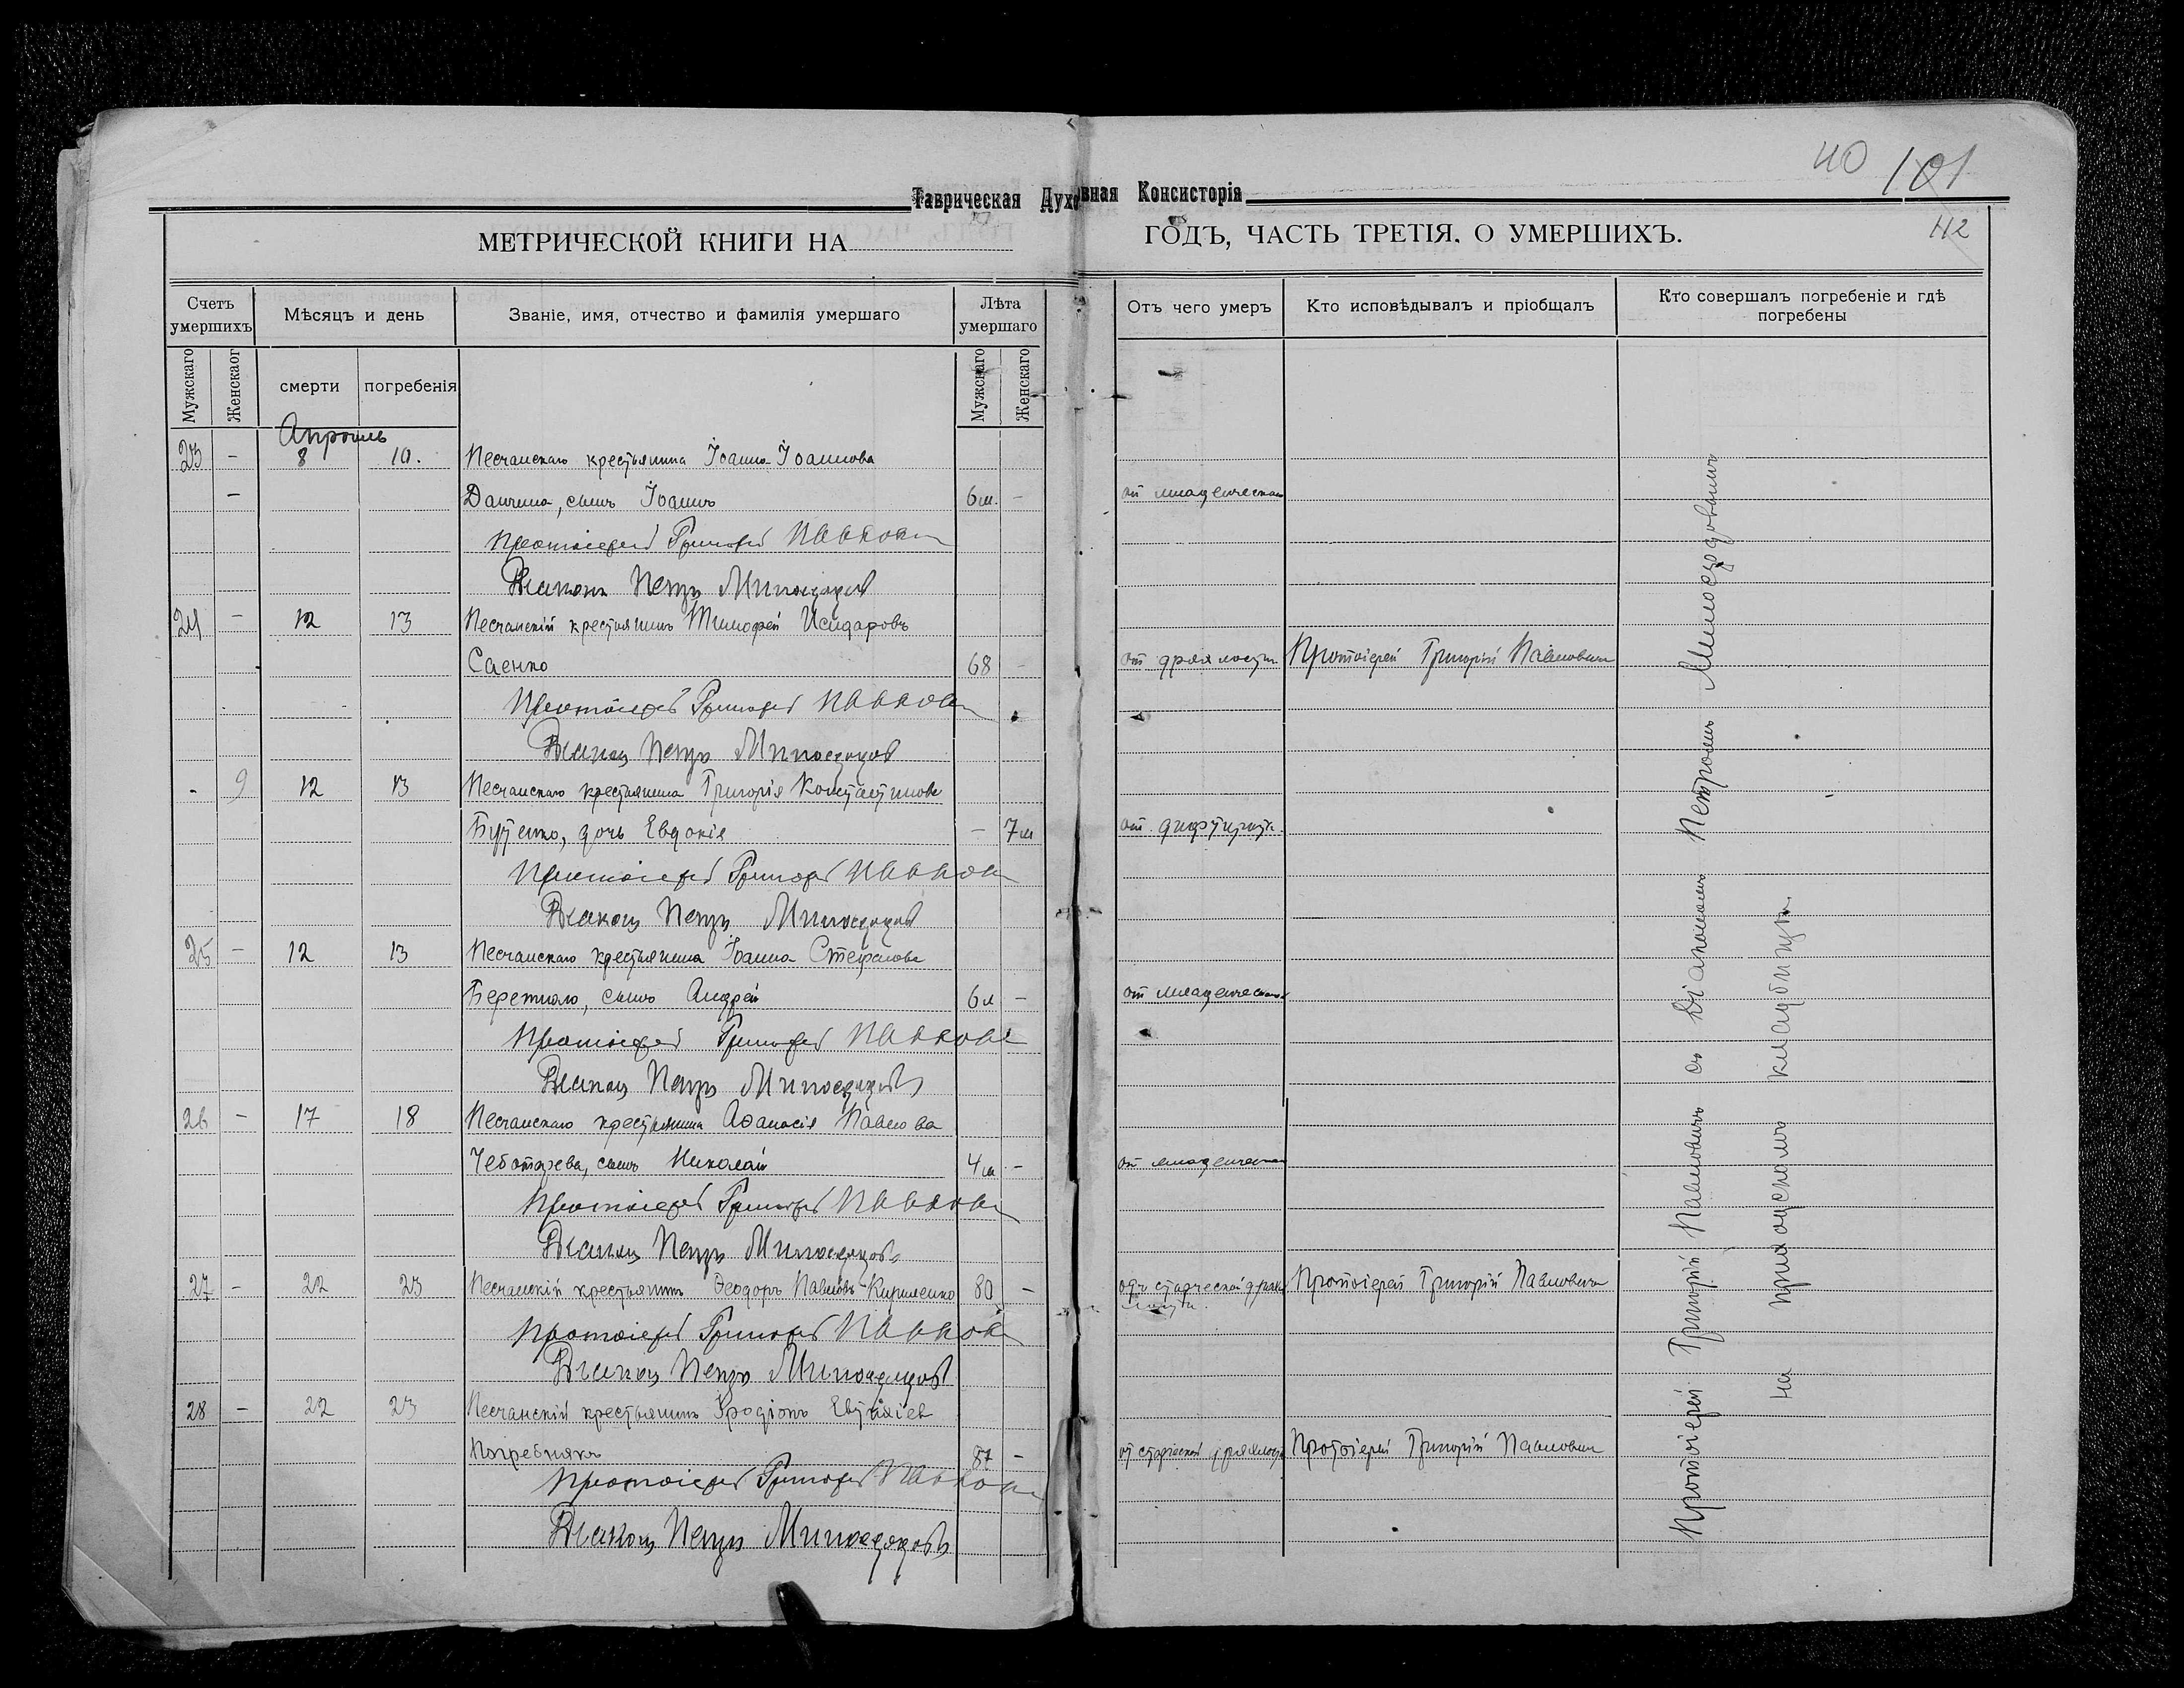 40 101
112
Таврическая Духовная Консисторія
МЕТРИЧЕСКОЙ КНИГИ НА ГОДЪ, ЧАСТЬ ТРЕТІЯ. О УМЕРШИХЪ.
Счетъ умершихъ
Мѣсяцъ и день
Званіе, имя, отчество и фамилія умершаго
Лѣта умершаго
Отъ чего умеръ
Кто исповѣдывалъ и пріобщалъ
Кто совершалъ погребеніе и гдѣ погребены
Мужскаго
Женскаог
смерти
погребенія
Мужскаго
Женскаго
Апрѣль
23 - 8 10. Песчанскаго крестьянина Іоанна Іоаннова
- Данчена, сынъ Іоаннъ 6 м. - от младенческой
Протоіерей Григорій Павлович
Діаконъ Петръ Милосердовъ
24 - 12 13 Песчанскій крестьянинъ Тимофей Исидоровъ
Саенко 68 - от дряхлости Протоіерей Григорій Павлович
Протоіерей Григорій Павлович
Діаконъ Петръ Милосердовъ
- 9 12 13 Песчанскаго крестьянина Григорія Константинова
Бутенко, дочь Евдокія - 7 м от дифтерита
Протоіерей Григорій Павлович
Діаконъ Петръ Милосердовъ
25 - 12 13 Песчанскаго крестьянина Іоанна Стефанова
Бережнаго, сынъ Андрей 6 м - от младенческой
Протоіерей Григорій Павлович
Діаконъ Петръ Милосердовъ
26 - 17 18 Песчанскаго крестьянина Аѳанасія Павлова
Чеботарева, сынъ Николай 4 м - от младенческой
Протоіерей Григорій Павлович
Діаконъ Петръ Милосердовъ
27 - 22 23 Песчанскій крестьянинъ Ѳеодоръ Павловъ Кириленко 80 - отъ старческой дряхлости Протоіерей Григорій Павлович
Протоіерей Григорій Павлович
Діаконъ Петръ Милосердовъ
28 - 22 23 Песчанскій крестьянинъ Иродіонъ
Погребнякъ 87 - от старческой дряхлости Протоіерей Григорій Павлович
Протоіерей Григорій Павлович
Діаконъ Петръ Милосердовъ
Протоіерей Григорій Павловичъ съ Діакономъ Петромъ Милосердовымъ
на приходскомъ кладбищѣ.